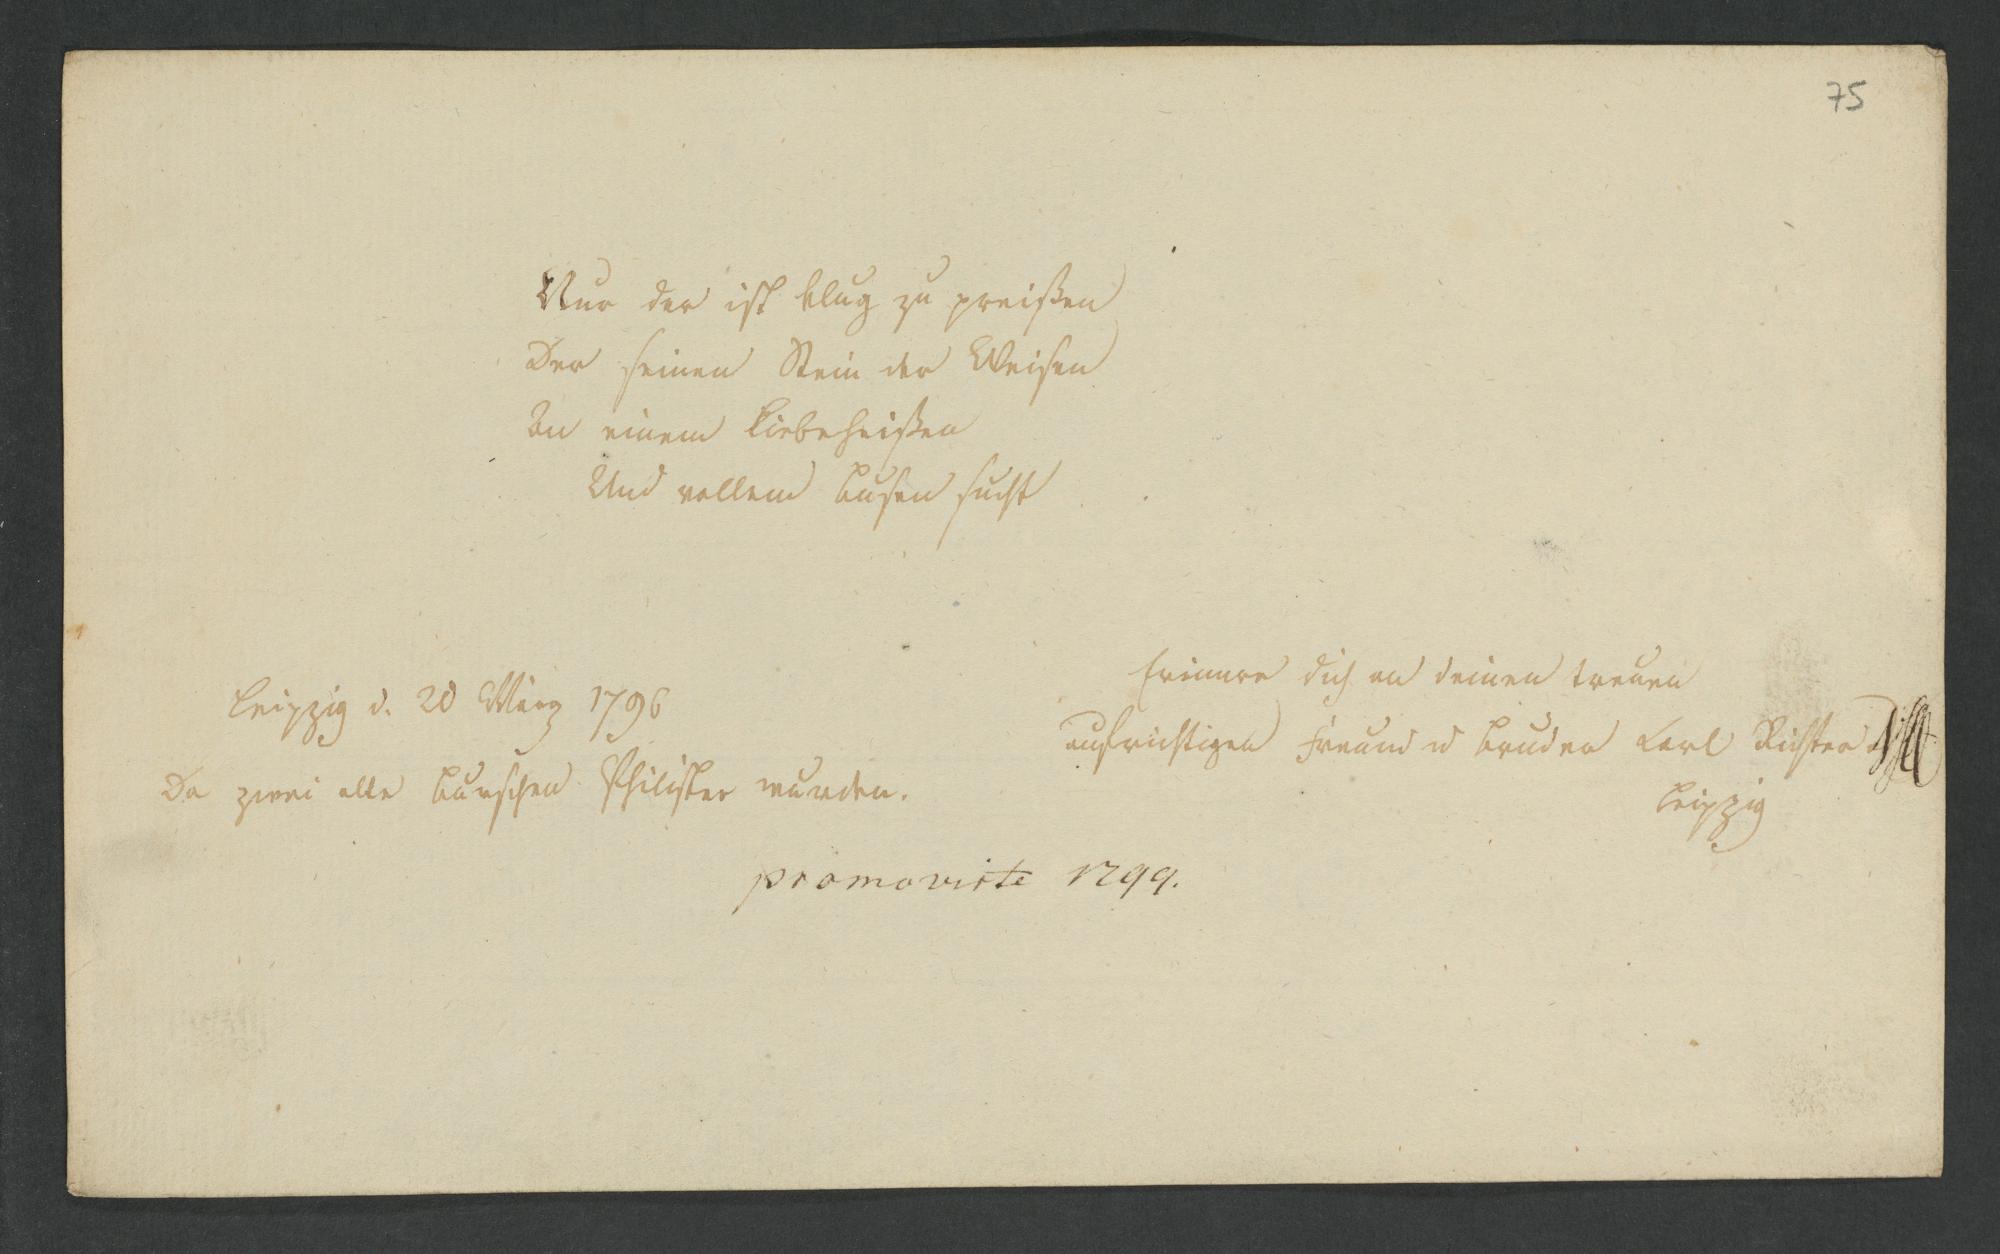 75
Nur der ist klug zu preißen
Der seinen Stein der Weisen
An einem Liebeheißen
Und vollem Busen sucht
Leipzig d. 20 März 1796
Da zwei alte Burschen Philister wurden.
Erinnre dich an deinen treuen
aufrichtigen Freund u Bruder Carl Richter
Leipzig
promovirte 1799.